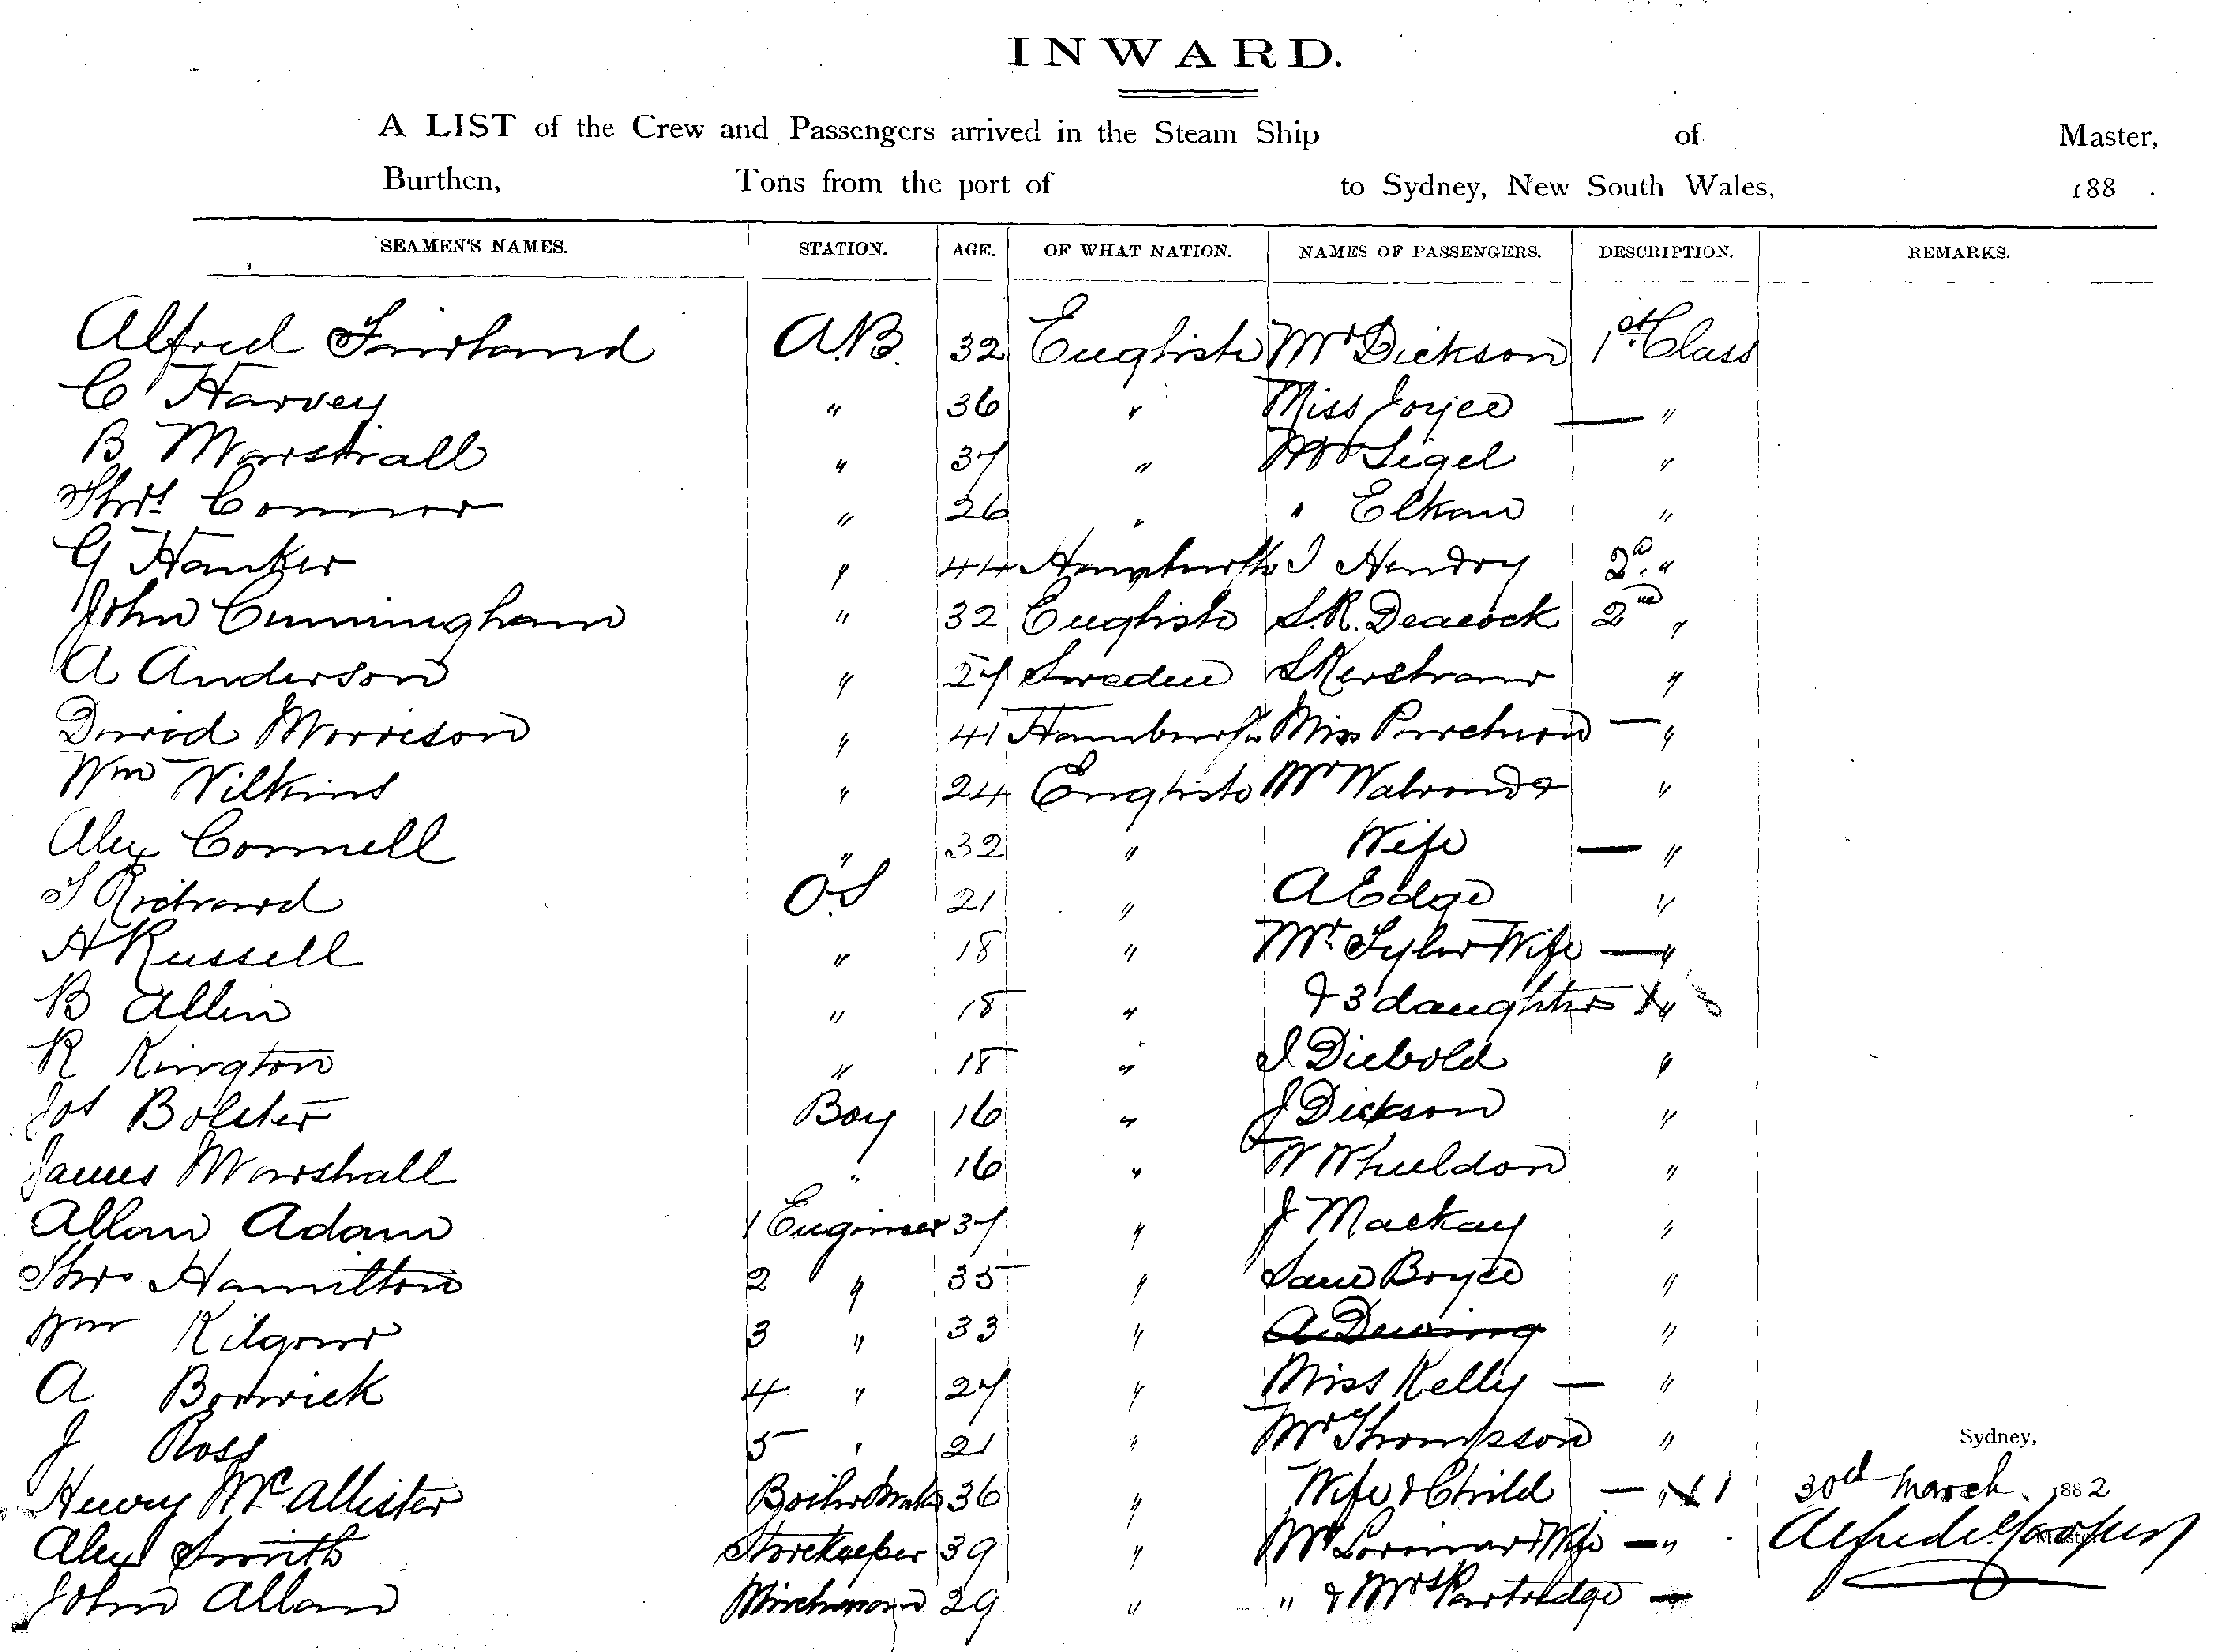 INWARD.
A LIST of the Crew and Passengers arrived in the Steam Ship of Master,
Burthen, Tons from the port of to Sydney, New South Wales, 188 .
SEAMEN'S NAMES. STATION. AGE. OF WHAT NATION. NAMES OF PASSENGERS. DESCRIPTION. REMARKS.
Alfred A.B. 32 English Mr Dickson 1st Class
C Harvey " 36 " Miss Joyce — "
B Marshall " 37 " Mr Sigel "
Thos Connor " 26 " " Elkan "
G Hanker " 44 I Hendry 2d "
John Cunningham " 32 English S.R. Deacock 2nd "
A Anderson " 27 Sweden "
David Morrison " 41 Miss — "
Wm Wilkins " 24 English Mr Walrond &
Alex Connell " 32 " Wife — "
T Richard O.S 21 " A Edge "
A Russell " 18 " Mr Tyler Wife — "
B Allen " 18 " & 3 daughters X " 3
R Kington " 18 " I Diebold "
Jos Bolster Boy 16 " J Dickson "
James Marshall " 16 " W Wheeldon "
Allan Adam 1 Engineer 37 " J Mackay "
Thos Hamilton 2 " 35 " Jane Boyce "
Wm Kilgour 3 " 33 " "
A Borwick 4 " 27 " Miss Kelly — "
J Ross 5 " 21 " Mr Thompson "
Henry McAllister 36 " Wife & Child — " X 1
Alex Smith Storekeeper 39 " Mr Lorimar & Wife — "
John Allan 29 " " & Mrs Partridge —
Sydney,
30th March 1882
Alfred